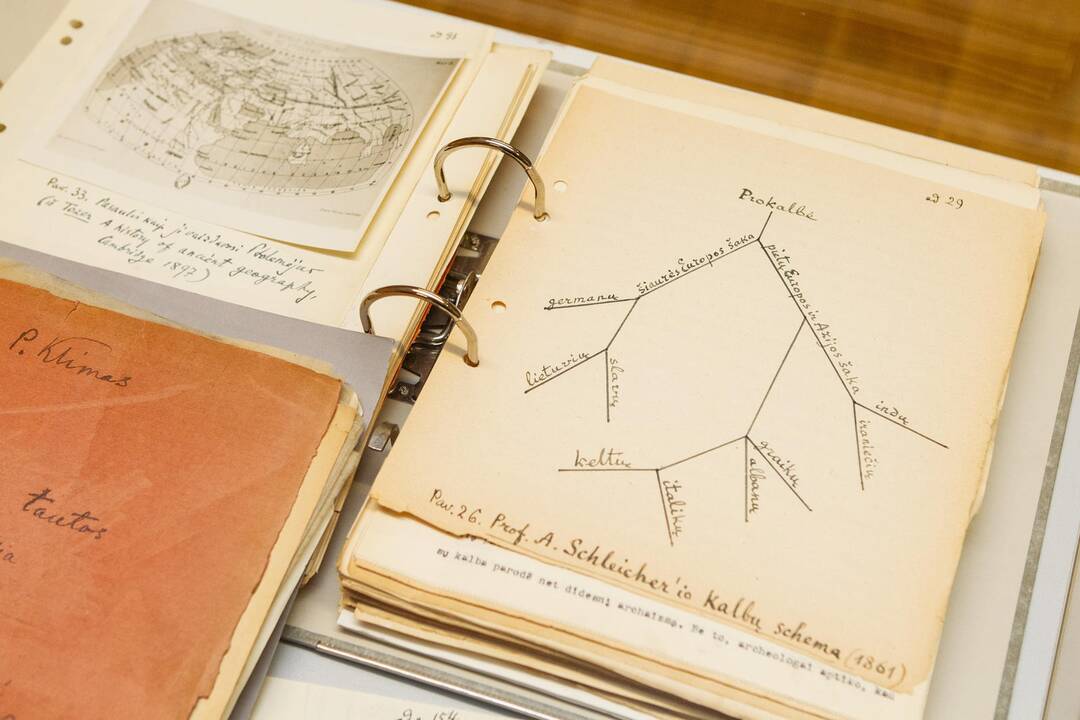 Pav. 33. Pasaulis kaip jį vaizdavosi Ptolemėjus
(iš Tozer A history of ancient geography,
Cambridge 1897)
P. Klimas
tautos
29
Prokalbė
šiaurės Europos šaka
pietų Europos ir Azijos šaka
germanų
lietuvių
slavų
indų
iraniečių
keltų
italikų
albanų
graikų
Pav. 26. Prof. A. Schleicher'io kalbų schema (1861)
mų kalba parodė net didesnį archaizmą. Be to, archeologai aptiko, kad